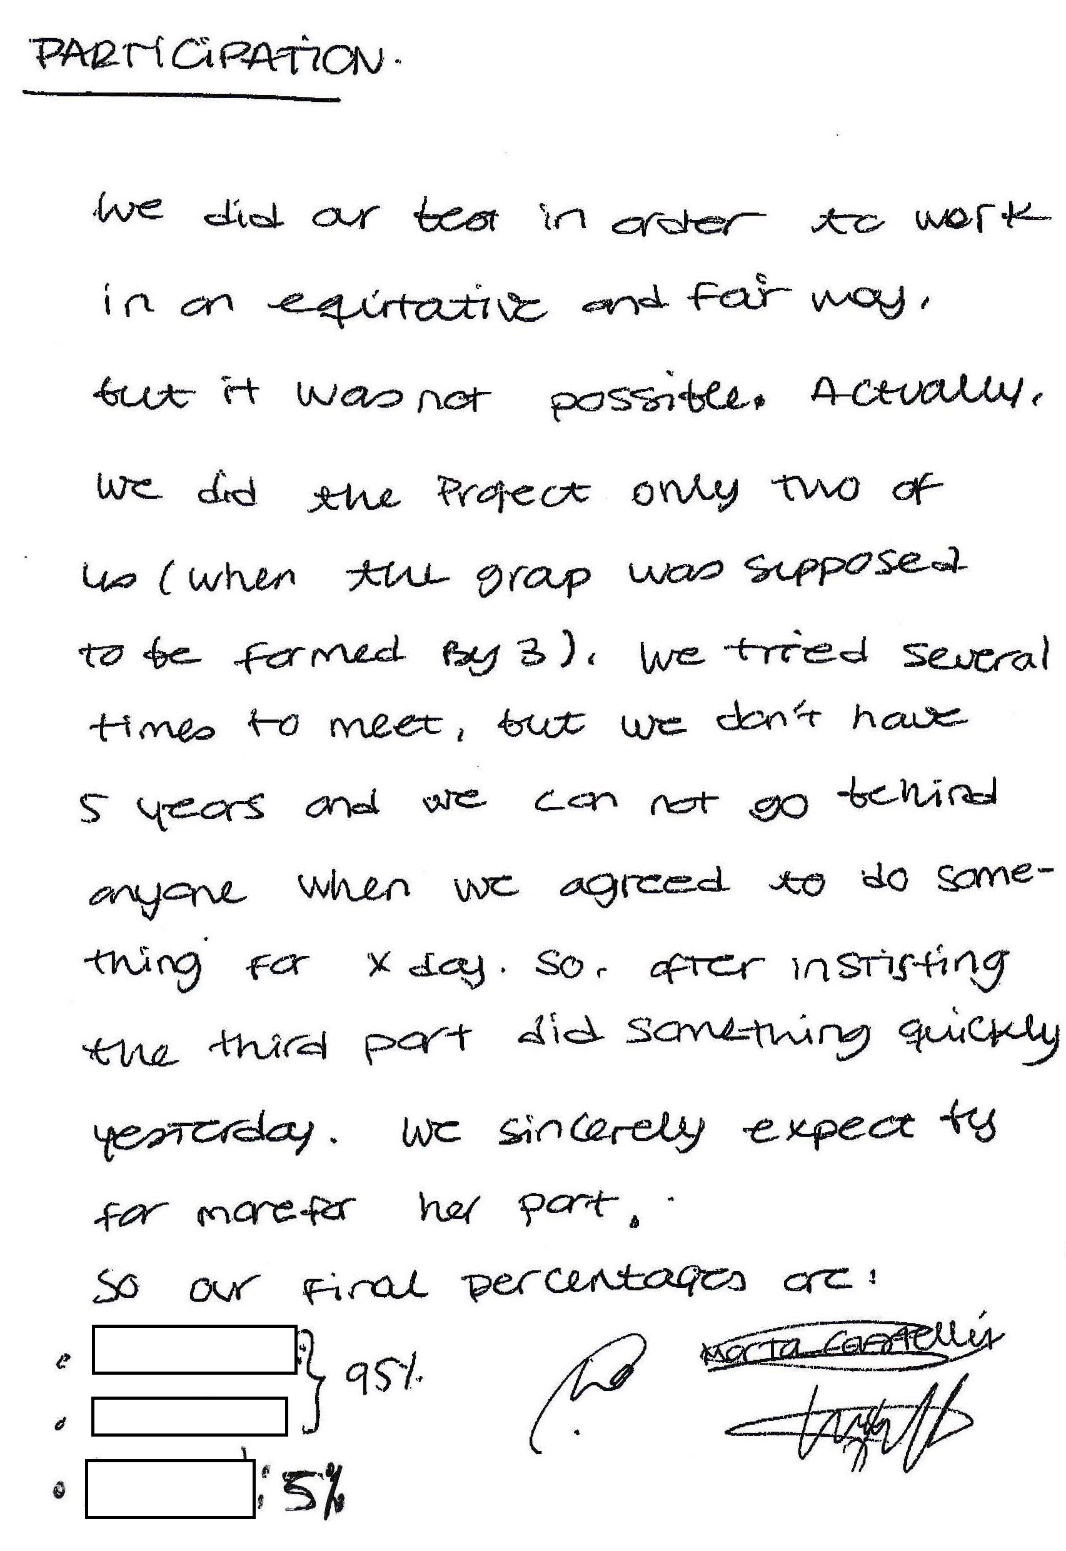 PARTICIPATION.
We did our best in order to work
in an equirtative and fair way,
but it was not possible. Actually,
we did the Project only two of
us (when the group was supposed
to be formed By 3). We tried several
times to meet, but we don't have
5 years and we can not go behind
anyone when we agreed to do some-
thing for X day. So, after instisting
the third part did something quickly
yesterday. We sincerely expect
for more for her part.
So our final percentages are:
95%
5%